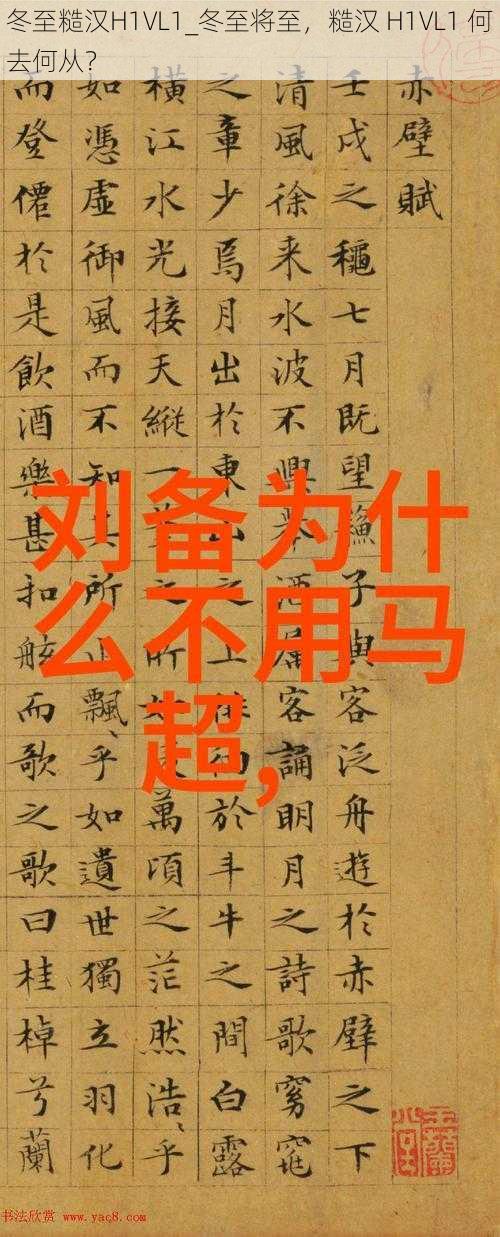 冬至糙汉H1VL1_冬至将至，糙汉 H1VL1 何
去何从？
赤壁賦
壬戌之穐七月既望蘓子與客泛舟遊於赤壁之下
清風徐来水波不興舉酒屬客誦明月之詩歌窈窕
之章少焉月出於東山之上徘徊於斗牛之間白露
横江水光接天縱一之所如萬頃之茫然浩乎
如憑虚御風而不知其所止飄乎如遺世獨立羽化
而登僊於是飲酒樂甚扣舷而歌之歌曰桂棹兮蘭
刘备为什
么不用马
超,
书法欣赏 www.yac8.com